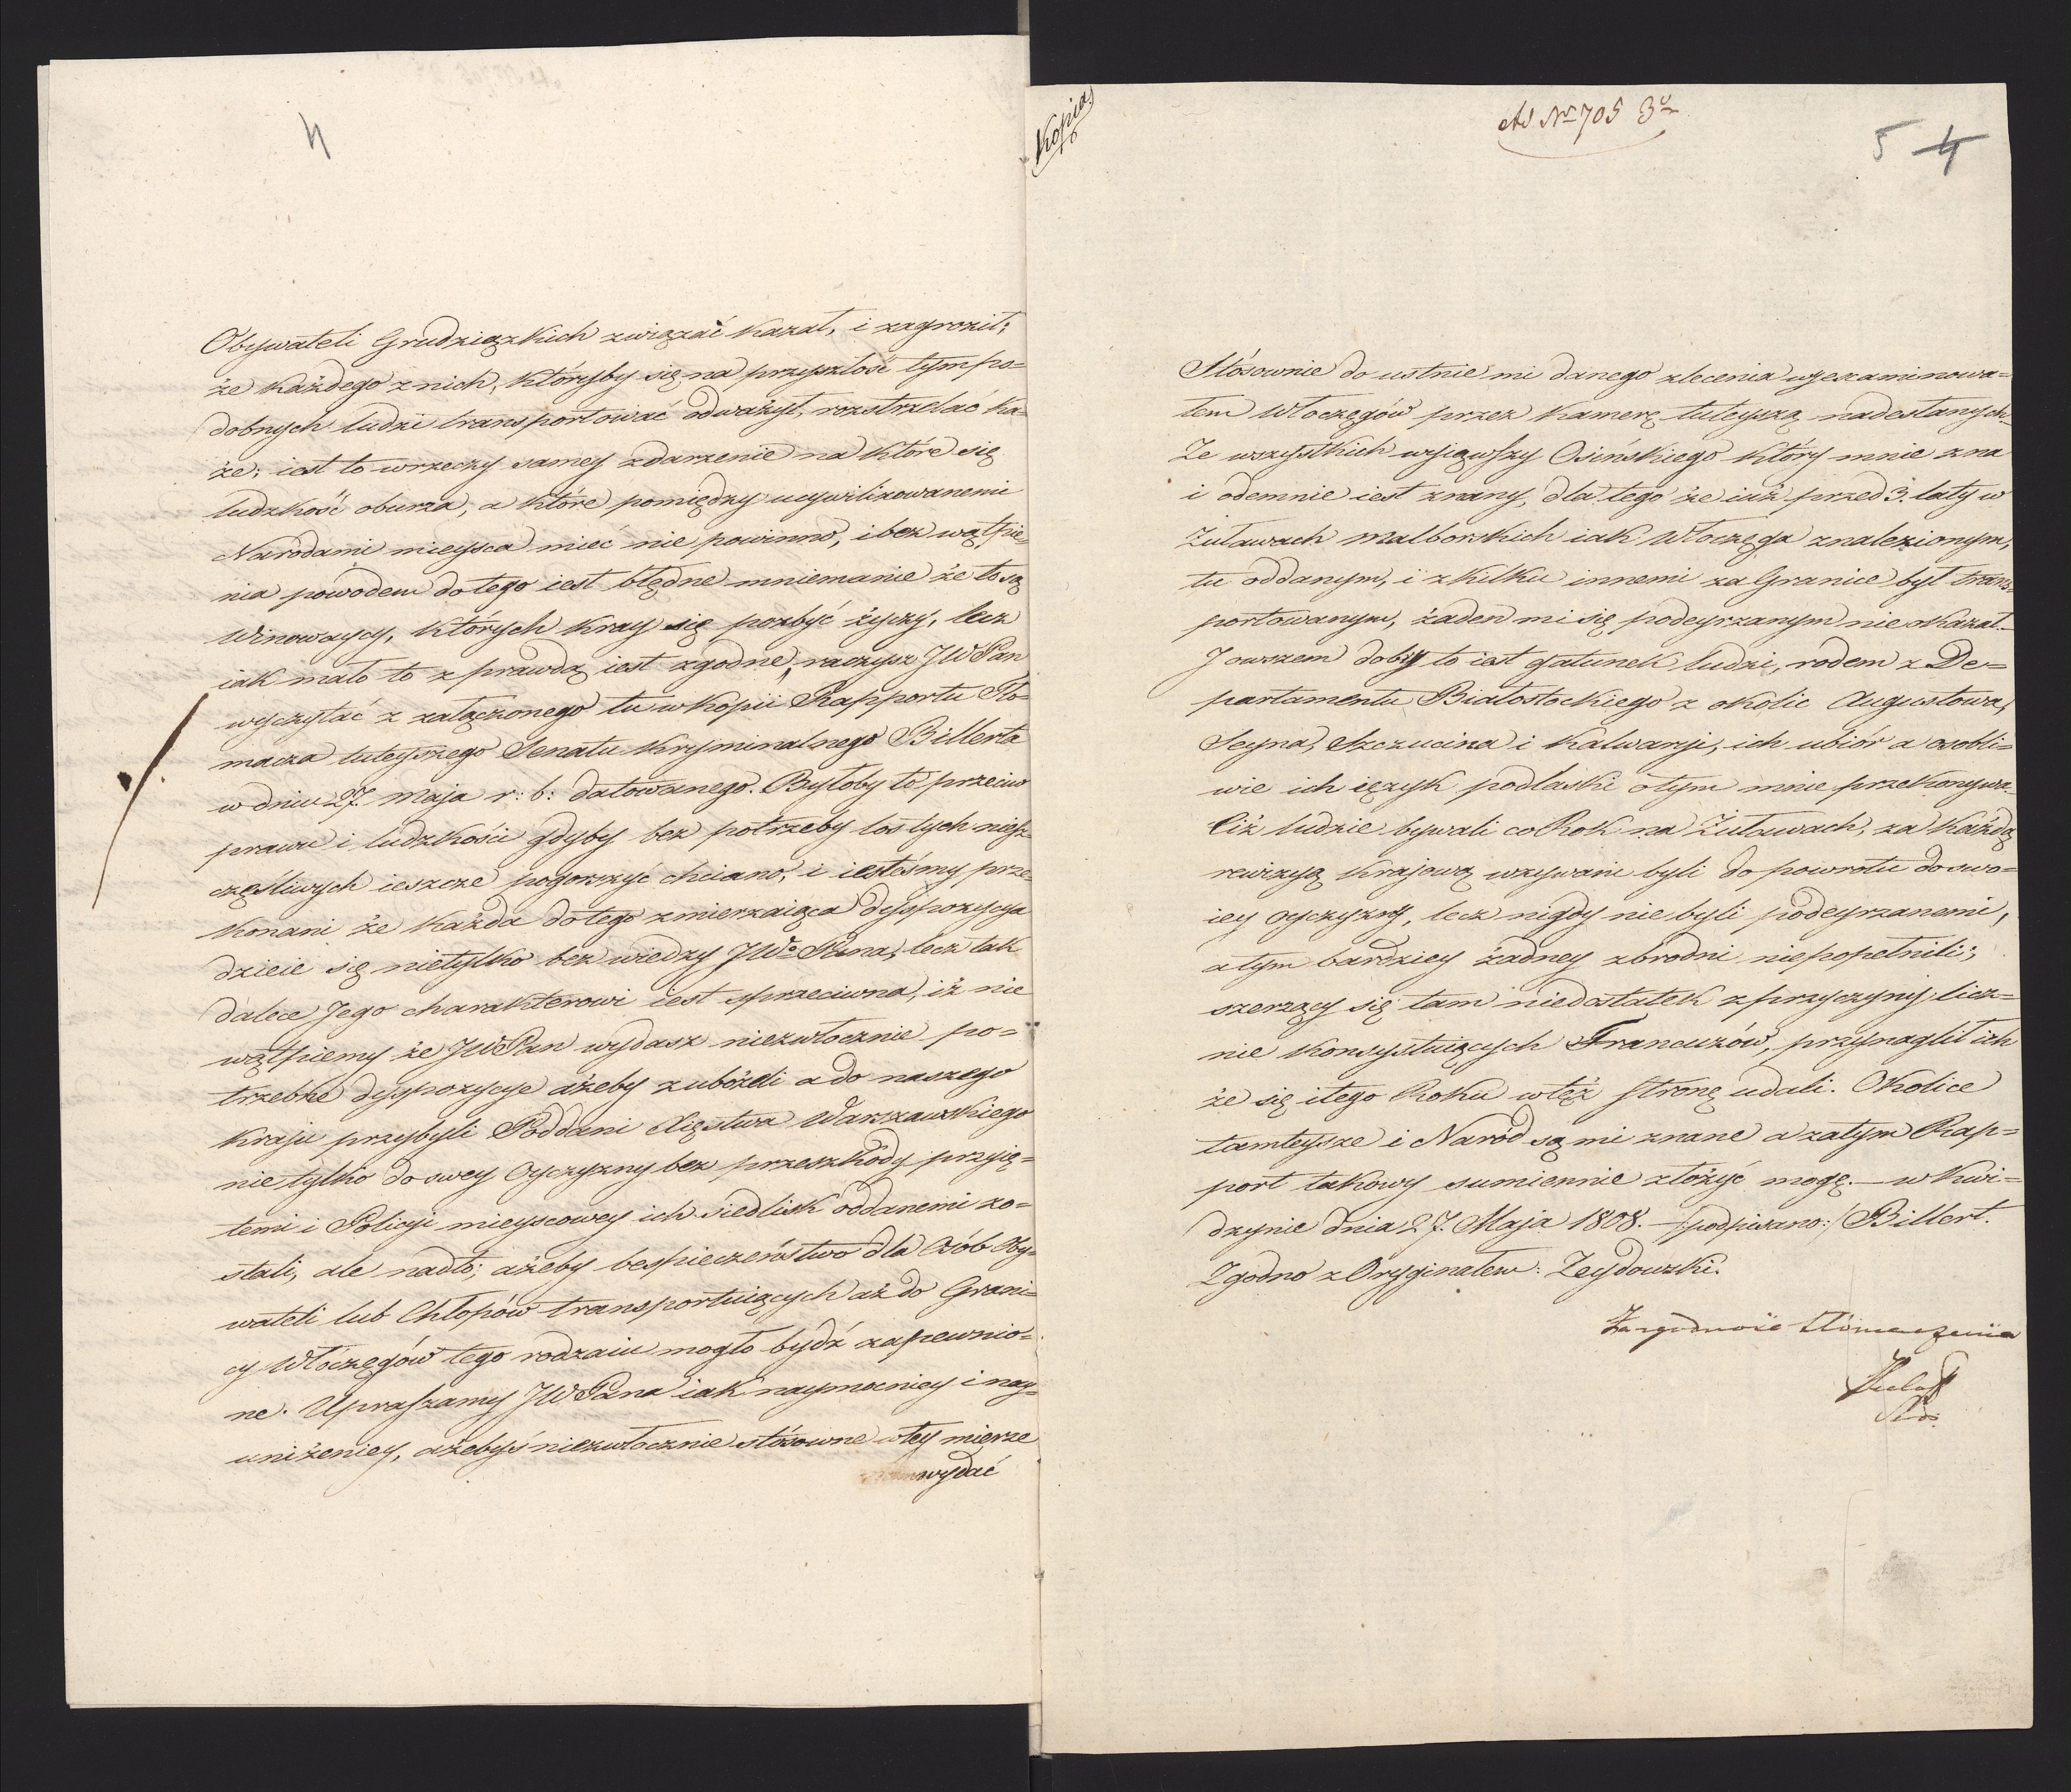 4
Obywateli Grudziązkich związać kazał, i zagroził;
że każdego z nich, któryby się na przyszłość tym po=
dobnych ludzi transportować odważył, rozstrzelać ka=
że; iest to wrzeczy samey zdarzenie na które się
ludzkość oburza, a które pomiędzy ucywilizowanemi
Narodami mieysca mieć nie powinno, i bez wątpie=
nia powodem do tego iest błędne mniemanie że to są
Winowaycy, których kray się pozbyć życzy, lecz
iak mało to z prawdą iest zgodne, raczysz JWPan
wyczytać z załączonego tu w kopii Rapportu Tło=
macza tuteyszego Senatu Kryminalnego Billerta
w dniu 27. Maja r: b: datowanego. Byłoby to przeciw
prawu i ludzkości gdyby bez potrzeby los tych niesz=
częśliwych ieszcze pogorszyć chciano, i iesteśmy prze=
konani że każda do tego zmierzaiąca dyspozycya
dzieie się nietylko bez wiedzy JWo Pana, lecz tak
dalece Jego charakterowi iest sprzeciwna, iż nie
wątpiemy że JWPan wydasz niezwłocznie po=
trzebne dyspozycye ażeby zubożeli a do naszego
kraju przybyli Poddani Xięstwa Warszawskiego
nie tylko do swey Oyczyzny bez przeszkody przyię=
temi i Policyi mieyscowey ich siedlisk oddanemi zo=
stali, ale nadto; ażeby bespieczeństwo dla Osób Oby=
wateli lub Chłopów transportuiących aż do Grani=
cy Włóczęgów tego rodzaiu mogło bydź zapewnio=
ne. Upraszamy JWPana iak naymocniey i nay=
uniżeniey, ażebyś niezwłocznie stósowne w tey mierze
wydać
Kopia
Ad No 705 3o
5 4
Stósownie do ustnie mi danego zlecenia wyexaminowa=
łem Włoczęgów przez Kamerę tuteyszą nadesłanych.
Ze wszystkich wyiąwszy Osińskiego który mnie zna
i odemnie iest znany, dla tego że iuż przed 3. laty w
Żuławach Malborskich iak Włoczęga znalezionym,
tu oddanym, i z kilku innemi za Granice był trans=
portowanym, żaden mi się podeyrzanym nie okazał.
J owszem dobry to iest gatunek ludzi, rodem z De=
partamentu Białostockiego z okolic Augustowa,
Seyna, Szczucina i Kalwaryi, ich ubiór a osobli=
wie ich ięzyk podlaski o tym mnie przekonywa.
Ciż ludzie bywali co Rok na Żuławach, za każdą
rewizyą krajową wzywani byli do powrotu do swo=
iey oyczyzny, lecz nigdy nie byli podeyrzanemi,
a tym bardziey żadney zbrodni niepopełnili;
szerzący się tam niedostatek z przyczyny licz=
nie konsystuiących Francuzów, przynaglił ich
że się i tego Roku w tęż stronę udali. Okolice
tamteysze i Naród są mi znane a zatym Rap=
port takowy sumiennie złożyć mogę. — w Kwi=
dzynie dnia 27. Maja 1808. — /:podpisano:/ Billert.
Zgodno z Oryginałem: Zeydowski.
Za zgodność tłómaczenia